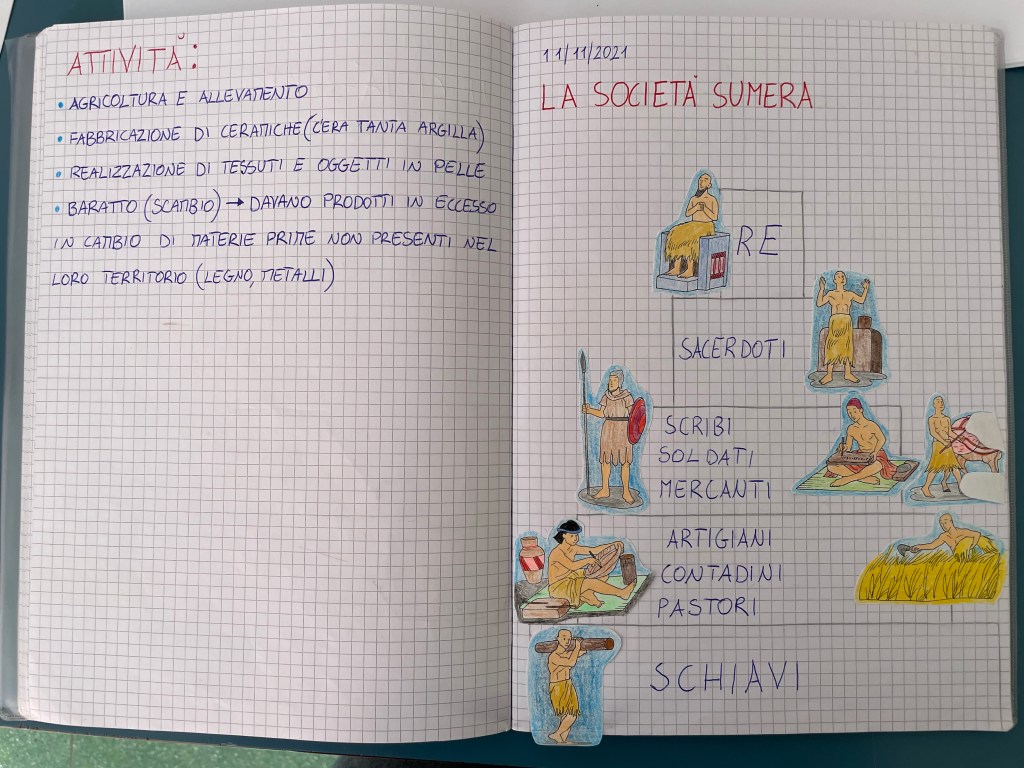 ATTIVITÀ:
• AGRICOLTURA E ALLEVAMENTO
• FABBRICAZIONE DI CERAMICHE (C'ERA TANTA ARGILLA)
• REALIZZAZIONE DI TESSUTI E OGGETTI IN PELLE
• BARATTO (SCAMBIO) → DAVANO PRODOTTI IN ECCESSO
IN CAMBIO DI MATERIE PRIME NON PRESENTI NEL
LORO TERRITORIO (LEGNO, METALLI)
11/11/2021
LA SOCIETÀ SUMERA
RE
SACERDOTI
SCRIBI
SOLDATI
MERCANTI
ARTIGIANI
CONTADINI
PASTORI
SCHIAVI